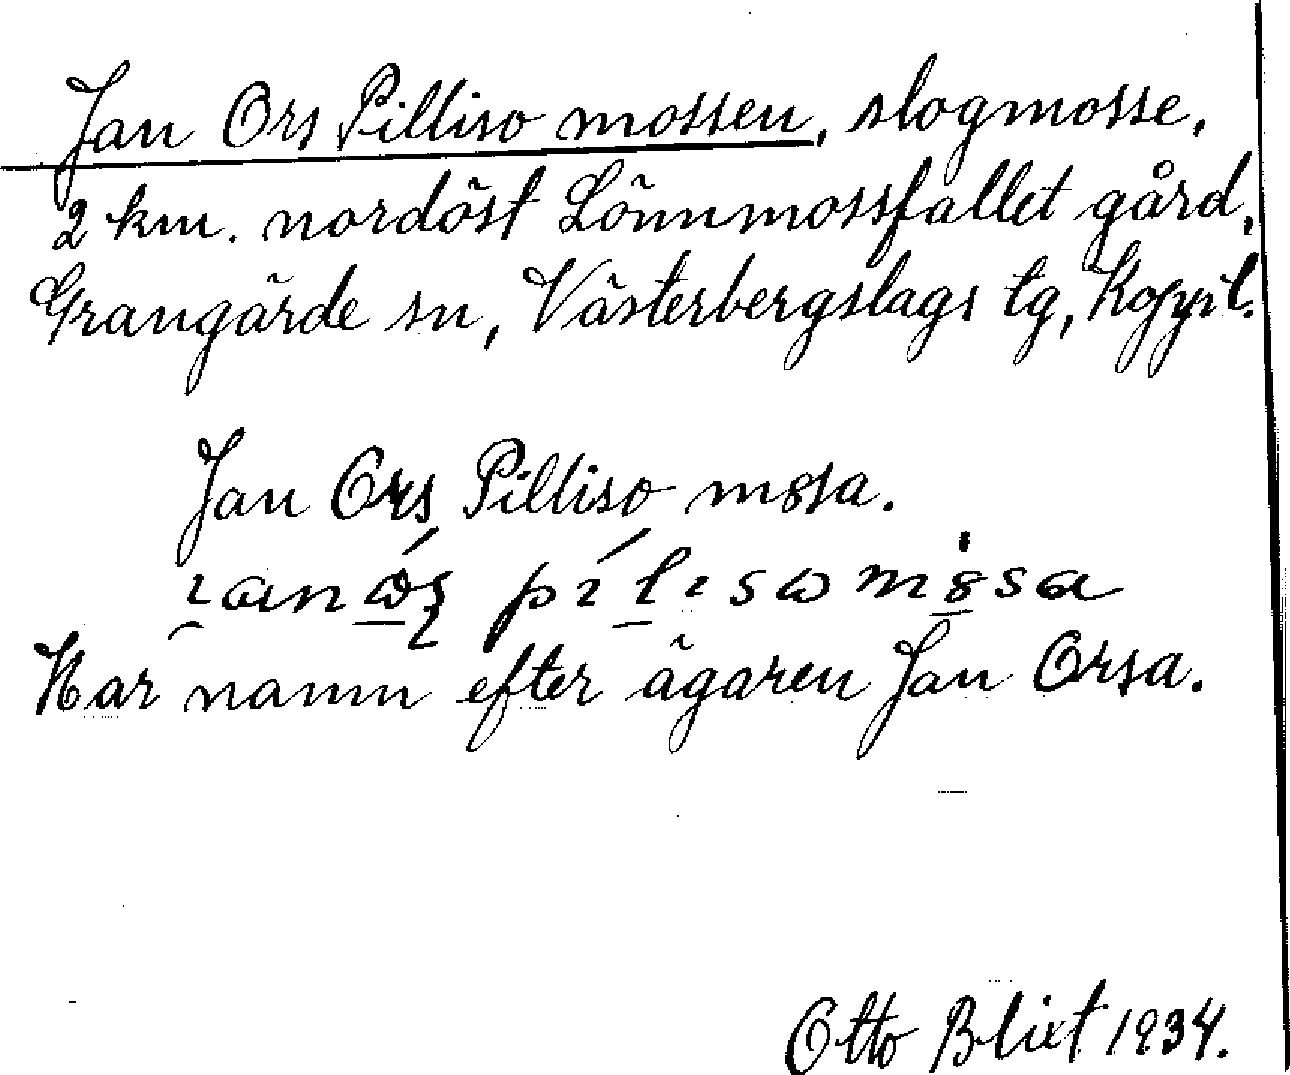 Jan Ors Pilliso mossen, slogmosse,
2 km. nordöst Lönnmossfallet gård,
Grangärde sn, Västerbergslags tg, Kopp. l.
Jan Ors Pilliso mossa.
Har namn efter ägaren Jan Orsa.
Otto Blixt 1934.